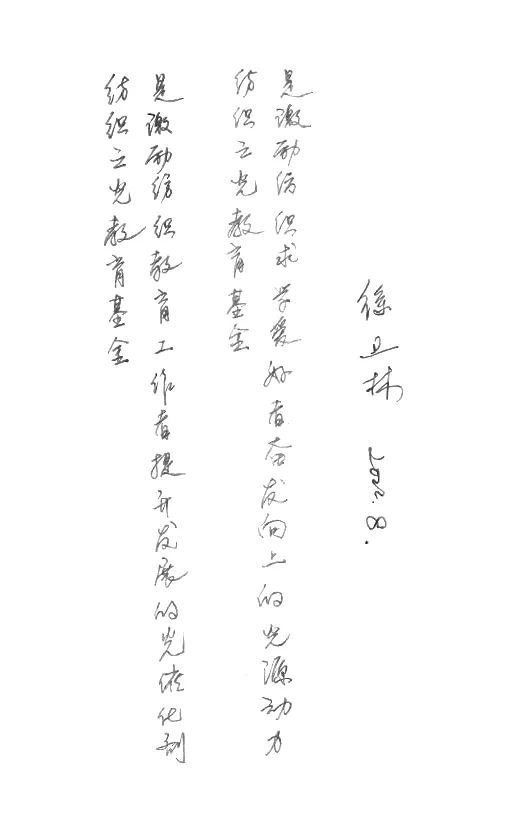 纺织之光教育基金
是激励纺织教育工作者提升发展的光催化剂
纺织之光教育基金
是激励纺织求学爱好者奋发向上的光源动力
徐卫林 2022.8.